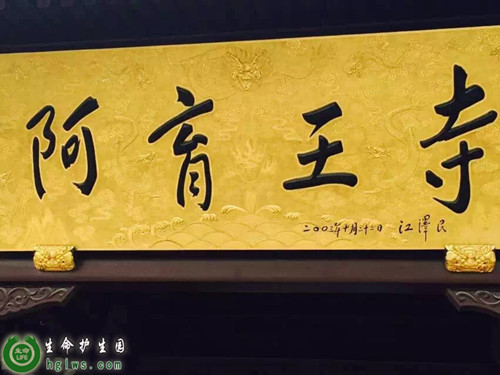 阿育王寺
二〇〇三年十月二十二日 江泽民
生命护生园
生命
LIFE
hglws.com